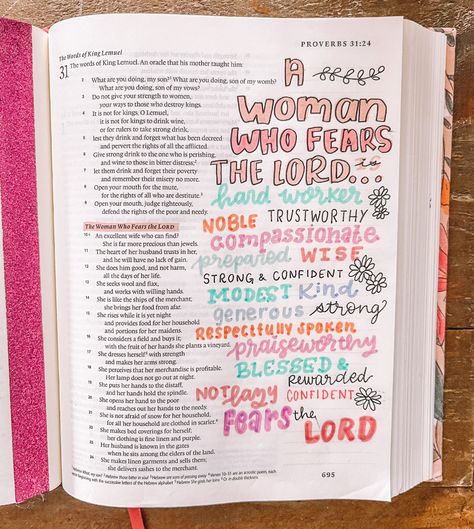 The Words of King Lemuel
PROVERBS 31:24
31 The words of King Lemuel. An oracle that his mother taught him:
2 What are you doing, my son? What are you doing, son of my womb?
What are you doing, son of my vows?
3 Do not give your strength to women,
your ways to those who destroy kings.
4 It is not for kings, O Lemuel,
it is not for kings to drink wine,
or for rulers to take strong drink,
5 lest they drink and forget what has been decreed
and pervert the rights of all the afflicted.
6 Give strong drink to the one who is perishing,
and wine to those in bitter distress;
7 let them drink and forget their poverty
and remember their misery no more.
8 Open your mouth for the mute,
for the rights of all who are destitute.
9 Open your mouth, judge righteously,
defend the rights of the poor and needy.
The Woman Who Fears the LORD
10 An excellent wife who can find?
She is far more precious than jewels.
11 The heart of her husband trusts in her,
and he will have no lack of gain.
12 She does him good, and not harm,
all the days of her life.
13 She seeks wool and flax,
and works with willing hands.
14 She is like the ships of the merchant;
she brings her food from afar.
15 She rises while it is yet night
and provides food for her household
and portions for her maidens.
16 She considers a field and buys it;
with the fruit of her hands she plants a vineyard.
17 She dresses herself with strength
and makes her arms strong.
18 She perceives that her merchandise is profitable.
Her lamp does not go out at night.
19 She puts her hands to the distaff,
and her hands hold the spindle.
20 She opens her hand to the poor
and reaches out her hands to the needy.
21 She is not afraid of snow for her household,
for all her household are clothed in scarlet.
22 She makes bed coverings for herself;
her clothing is fine linen and purple.
23 Her husband is known in the gates
when he sits among the elders of the land.
24 She makes linen garments and sells them;
she delivers sashes to the merchant.
A
WOMAN
WHO FEARS
THE LORD... is
hard worker
NOBLE TRUSTWORTHY
compassionate
prepared WISE
STRONG & CONFIDENT
MODEST kind
generous strong
RESPECTFULLY SPOKEN
praiseworthy
BLESSED &
rewarded
NOT lazy CONFIDENT
FEARS the
LORD
695